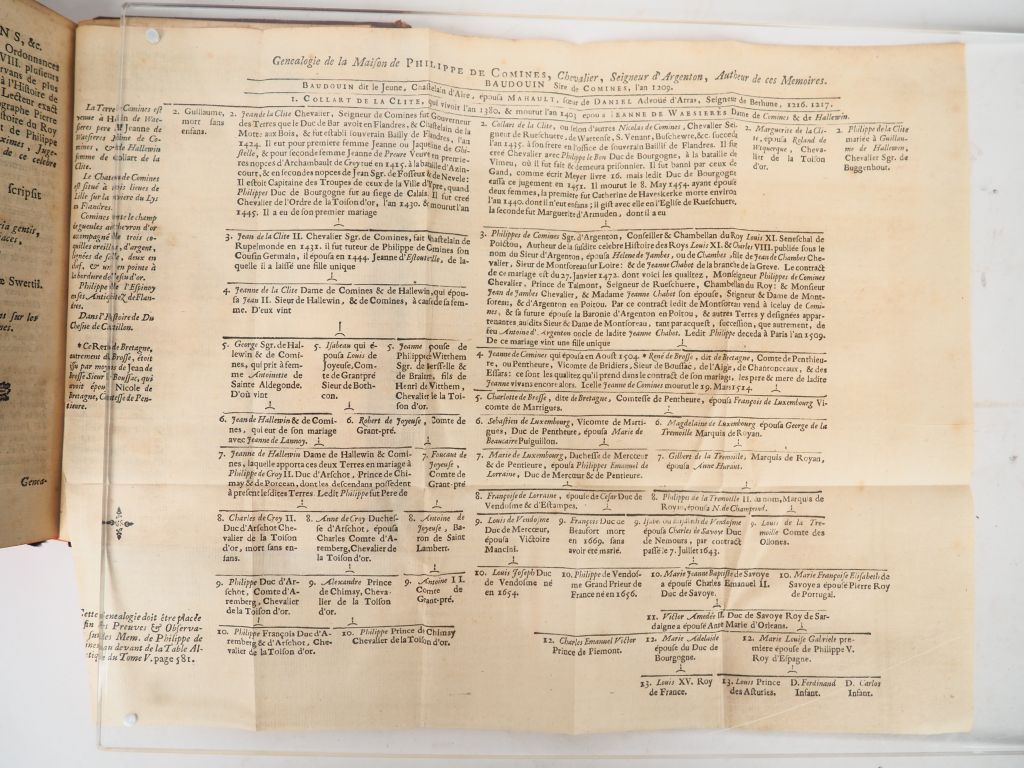 N S, &c.
Ordonnances
VIII. plusieurs
ervans de plus
à l'Histoire de
Lecteur exact
ographe Pierre
Roy
de Philippe
ximes, Juge-
de ce celebre
scripsit
ria gentis,
aces.
Swertii.
ut sur les
nes.
Genea-
Genealogie de la Maison de PHILIPPE DE COMINES, Chevalier, Seigneur d'Argenton, Autheur de ces Memoires.
BAUDOUIN Sire de COMINES, l'an 1209.
BAUDOUIN dit le Jeune, Chastelain d'Aire, épousa MAHAULT, sœur de DANIEL Advoué d'Arras, Seigneur de Bethune, 1216. 1217.
1. COLLART DE LA CLITE, qui vivoit l'an 1380, & mourut l'an 1403 epousa JEANNE DE WAESIERES Dame de Comines & de Hallewin.
La Terre de Comines est
venue à Hain de Wae-
sieres pere Jeanne de
Waesieres Dame de Co-
mines, & de Hallewin
femme de Collart de la
Clite.
Le Chateau de Comines
est situé à trois lieues de
Lille sur la riviere du Lys
en Flandres.
Comines porte le champ
de gueules au chevron d'or
accompagné de trois co-
quilles oreillées, d'argent,
lignées de sable, deux en
chef, & une en pointe à
la bordure de l'escu d'or.
Philippe de l'Espinoy
en ses Antiquitez de Flan-
dres.
Dans l'Histoire de Du
Chesne de Chastillon.
* Ce René de Bretagne,
autrement de Brosse, étoit
issu par moyen de Jean de
Brosse Sieur de Boussac, qui
avoit épousé Nicole de
Bretagne, Comtesse de Pen-
tieure.
2. Guillaume,
mort sans
enfans.
2. Jean de la Clite Chevalier, Seigneur de Comines fut Gouverneur
des Terres que le Duc de Bar avoit en Flandres, & Chastelain de la
Mote: aux Bois, & fut establi souverain Bailly de Flandres, l'an
1424. Il eut pour premiere femme Jeanne ou Jaqueline de Ghi-
stelle, & pour seconde femme Jeanne de Preure Veuve en premie-
res nopces d'Archambault de Groy tué en 1415. à la bataille d'Azin-
court, & en secondes nopces de Jean Sgr. de Fosseux & de Nevele:
Il estoit Capitaine des Troupes de ceux de la Ville d'Ypre, quand
Philippes Duc de Bourgogne fut au siege de Calais. Il fut creé
Chevalier de l'Ordre de la Toison d'or, l'an 1430. & mourut l'an
1445. Il a eu de son premier mariage
2. Collart de la Clite, ou selon d'autres Nicolas de Comines, Chevalier Sei-
gneur de Ruescheure, de Watenesse, S. Venant, Buschewere, &c. succeda
l'an 1435. à son frere en l'office de souverain Bailli de Flandres. Il fut
creé Chevalier avec Philippe le Bon Duc de Bourgogne, à la bataille de
Vimeu, où il fut fait & demeura prisonnier. Il fut banni par ceux de
Gand, comme écrit Meyer livre 16. mais ledit Duc de Bourgogne
cassa ce jugement en 1451. Il mourut le 8. May 1454. ayant épousé
deux femmes, la premiere fut Catherine de Haveskerke morte environ
l'an 1440. dont il n'eut enfans; il gist avec elle en l'Eglise de Rueschuere,
la seconde fut Marguerite d'Armuden, dont il a eu
2. Marguerite de la Cli-
te, épousa Roland de
Wtquerque, Cheva-
lier de la Toison
d'or.
2. Philippe de la Clite
mariée à Guillau-
me de Hallewin,
Chevalier Sgr. de
Buggenhout.
3. Jean de la Clite II. Chevalier Sgr. de Comines, fait Chastelain de
Rupelmonde en 1431. il fut tuteur de Philippe de Comines son
Cousin Germain, il épousa en 1444. Jeanne d'Estouteville, de la-
quelle il a laissé une fille unique
3. Philippes de Comines Sgr. d'Argenton, Conseiller & Chambellan du Roy Louis XI. Seneschal de
Poictou, Autheur de la susdite celebre Histoire des Roys Louis XI. & Charles VIII. publiée sous le
nom du Sieur d'Argenton, épousa Helene de Jambes, ou de Chambes, fille de Jean de Chambes Che-
valier, Sieur de Montsoreau sur Loire: & de Jeanne Chabot de la branche de la Greve. Le contract
de ce mariage est du 27. Janvier 1472. dont voici les qualitez, Monseigneur Philippes de Comines
Chevalier, Prince de Talmont, Seigneur de Rueschure, Chambellan du Roy: & Monsieur
Jean de Jambes Chevalier, & Madame Jeanne Chabot son épouse, Seigneur & Dame de Mont-
soreau, & d'Argenton en Poitou. Par ce contract ledit de Montsoreau vend à iceluy de Comi-
nes, & sa future épouse la Baronie d'Argenton en Poitou, & autres Terres y designées appar-
tenantes audits Sieur & Dame de Montsoreau, tant par acquest, succession, que autrement, de
feu Antoine d'Argenton oncle de ladite Jeanne Chabot. Ledit Philippe deceda à Paris l'an 1509.
De ce mariage vint une fille unique
4. Jeanne de la Clite Dame de Comines & de Hallewin, qui épou-
sa Jean II. Sieur de Hallewin, & de Comines, à cause de sa fem-
me. D'eux vint
4. Jeanne de Comines qui épousa en Aoust 1504. * René de Brosse, dit de Bretagne, Comte de Penthieu-
re, ou Pentheure, Vicomte de Bridiers, Sieur de Boussac, de l'Aigle, de Chantonceaux, & des
Essars: ce sont les qualitez qu'il prend dans le contract de son mariage, les pere & mere de ladite
Jeanne vivans encore alors. Icelle Jeanne de Comines mourut le 19. Mars 1514.
5. George Sgr. de Hal-
lewin & de Comi-
nes, qui prit à fem-
me Antoinette de
Sainte Aldegonde.
D'où vint
5. Isabeau qui é-
pousa Louis de
Joyeuse, Com-
te de Grantpré
Sieur de Both-
eon.
5. Jeanne épouse de
Philippe de Witthem
Sgr. de Iersselle &
de Braine, fils de
Henri de Witthem,
Chevalier de la Toi-
son d'or.
5. Charlotte de Brosse, dite de Bretagne, Comtesse de Pentheure, épousa François de Luxembourg Vi-
comte de Martigues.
6. Jean de Hallewin & de Comi-
nes, qui eut de son mariage
avec Jeanne de Lannoy.
6. Robert de Joyeuse, Comte de
Grant-pré.
6. Sebastien de Luxembourg, Vicomte de Marti-
gues, Duc de Pentheure, épousa Marie de
Beaucaire Puiguillon.
6. Magdelaine de Luxembourg épousa George de la
Tremoille Marquis de Royan.
7. Jeanne de Hallewin Dame de Hallewin & Comi-
nes, laquelle apporta ces deux Terres en mariage à
Philippe de Croy II. Duc d'Arschot, Prince de Chi-
may & de Porcean, dont les descendans possedent
à present lesdites Terres. Ledit Philippe fut Pere de
7. Foucaut de
Joyeuse,
Comte de
Grant-pré
7. Marie de Luxembourg, Duchesse de Mercœur
& de Pentieure, épousa Philippes Emanuel de
Lorraine, Duc de Mercœur & de Pentieure.
7. Gilbert de la Tremoille, Marquis de Royan,
épousa Anne Huraut.
8. Françoise de Lorraine, épouse de Cesar Duc de
Vendosme & d'Estampes.
8. Philippes de la Tremoille II. du nom, Marquis de
Royan, épousa N. de Champrond.
8. Charles de Croy II.
Duc d'Arschot Che-
valier de la Toison
d'or, mort sans en-
fans.
8. Anne de Croy Duches-
se d'Arschot, épousa
Charles Comte d'A-
remberg, Chevalier de
la Toison d'or.
8. Antoine de
Joyeuse, Ba-
ron de Saint
Lambert.
9. Louis de Vendosme
Duc de Mercœur,
épousa Victoire
Mancini.
9. François Duc de
Beaufort mort
en 1669. sans
avoir eté marié.
9. Isabeau ou Elisabeth de Vendosme
épousa Charles de Savoye Duc
de Nemours, par contract
passé le 7. Juillet 1643.
9. Louis de la Tre-
moille Comte des
Ollones.
9. Philippe Duc d'Ar-
schot, Comte d'A-
remberg, Chevalier
de la Toison d'or.
9. Alexandre Prince
de Chimay, Cheva-
lier de la Toison
d'or.
9. Antoine II.
Comte de
Grant-pré.
10. Louis Joseph Duc
de Vendosme né
en 1654.
10. Philippe de Vendos-
me Grand Prieur de
France né en 1656.
10. Marie Jeanne Baptiste de Savoye
a épousé Charles Emanuel II.
Duc de Savoye.
10. Marie Françoise Elisabeth de
Savoye a épousé Pierre Roy
de Portugal.
10. Philippe François Duc d'A-
remberg & d'Arschot, Che-
valier de la Toison d'or.
10. Philippe Prince de Chimay
Chevalier de la Toison d'or.
11. Victor Amedée II. Duc de Savoye Roy de Sar-
daigne a épousé Anne Marie d'Orleans.
12. Charles Emanuel Victor
Prince de Piemont.
12. Marie Adelaide
épouse du Duc de
Bourgogne.
12. Marie Louise Gabriele pre-
miere épouse de Philippe V.
Roy d'Espagne.
13. Louis XV. Roy
de France.
13. Louis Prince
des Asturies.
D. Ferdinand
Infant.
D. Carlos
Infant.
Cette Genealogie doit être placée
fin des Preuves & Observa-
sur les Mem. de Philippe de
mines au devant de la Table Al-
tique du Tome V. page 581.